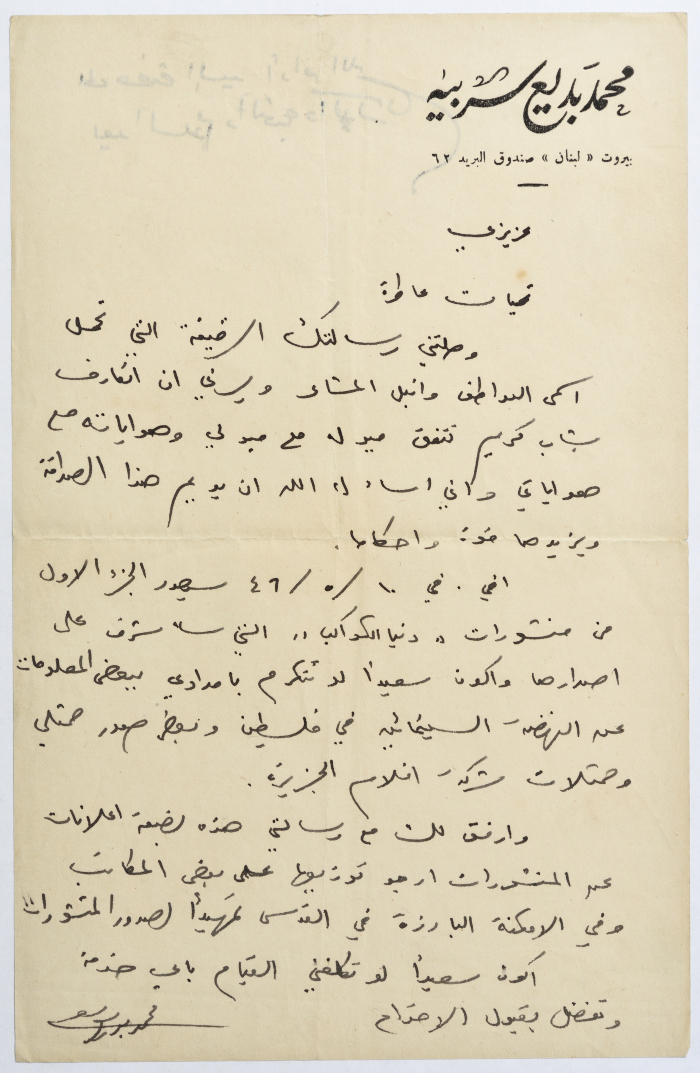 محمد بديع سربيه
بيروت « لبنان » صندوق البريد ٦٢
عزيزي
تحيات عاطرة
وصلتني رسالتك الرقيقة التي تحمل
اسمى العواطف وانبل المشاعر ويسرني ان اتعارف
بشاب كريم تتفق ميوله مع ميولي وهواياته مع
هواياتي واني اسأل الله ان يديم هذا الصداقة
ويزيدها قوة واحكاما.
اخي . في ١٠ / ٥ / ٤٦ سيصدر الجزء الاول
من منشورات " دنيا الكواكب " التي سأشرف على
اصدارها واكون سعيداً لو تتكرم بامدادي ببعض المعلومات
عن النهضة السينمائية في فلسطين وبعض صور ممثلي
وممثلات شركة افلام الجزيرة.
وارفق لك مع رسالتي هذه بضعة اعلانات
عن المنشورات ارجو توزيعها على بعض المكاتب
وفي الامكنة البارزة في القدس تمهيداً لصدور المنشورات
اكون سعيداً لو تكلفني القيام باي خدمة
وتفضل بقبول الاحترام